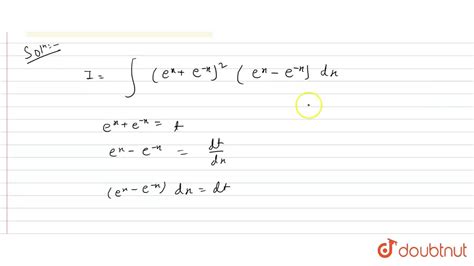 Solⁿ:-
I = ∫ (eˣ + e⁻ˣ)² (eˣ - e⁻ˣ) dx
eˣ + e⁻ˣ = t
eˣ - e⁻ˣ = dt/dx
(eˣ - e⁻ˣ) dx = dt
doubtnut